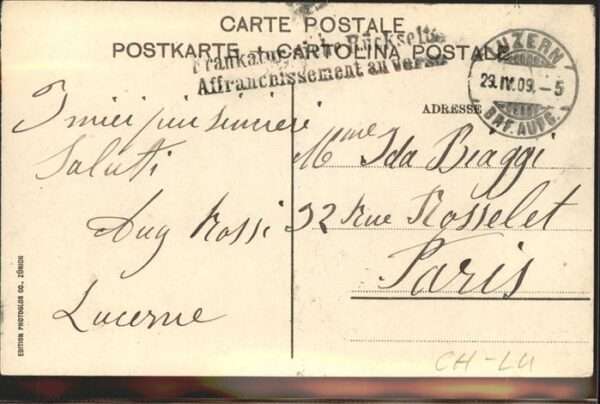 CARTE POSTALE
POSTKARTE + CARTOLINA POSTALE
Frankatur siehe Rückseite
Affranchissement au verso
LUZERN
29.IV.09.-5
BRF. AUFG.
ADRESSE
I miei più sinceri
Saluti
Aug Rossi
Lucerne
Mme Ida Biaggi
32 Rue Rosselet
Paris
EDITION PHOTOGLOB CO., ZÜRICH
CH-LU